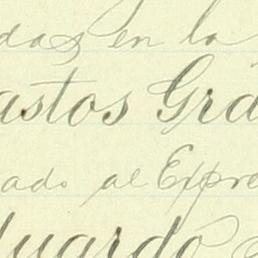 das en la
astos Gra
ado al Expre
duardo